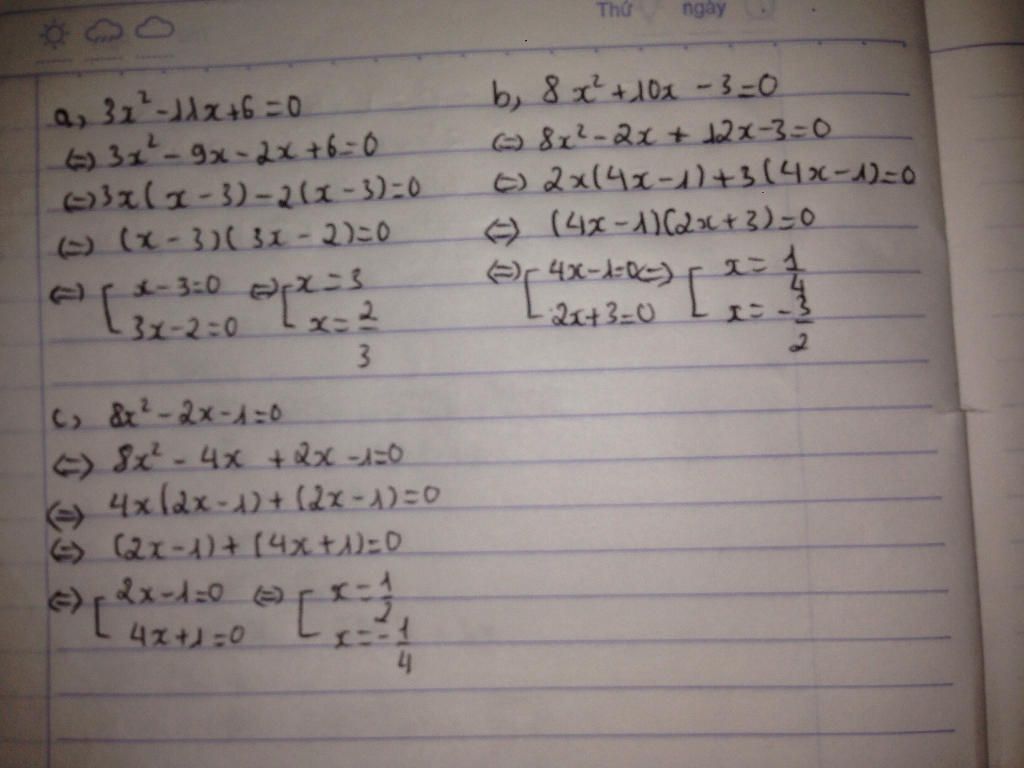 Thứ ngày
a, 3x² - 11x + 6 = 0
⇔ 3x² - 9x - 2x + 6 = 0
⇔ 3x(x - 3) - 2(x - 3) = 0
⇔ (x - 3)(3x - 2) = 0
⇔ [ x - 3 = 0 ⇔ [ x = 3
3x - 2 = 0 x = 2/3
b, 8x² + 10x - 3 = 0
⇔ 8x² - 2x + 12x - 3 = 0
⇔ 2x(4x - 1) + 3(4x - 1) = 0
⇔ (4x - 1)(2x + 3) = 0
⇔ [ 4x - 1 = 0 ⇔ [ x = 1/4
2x + 3 = 0 x = -3/2
c, 8x² - 2x - 1 = 0
⇔ 8x² - 4x + 2x - 1 = 0
⇔ 4x(2x - 1) + (2x - 1) = 0
⇔ (2x - 1) + (4x + 1) = 0
⇔ [ 2x - 1 = 0 ⇔ [ x = 1/2
4x + 1 = 0 x = -1/4